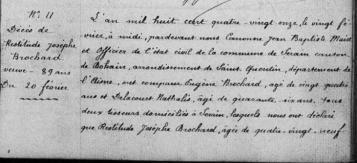 N° 11
Décès de
Restitude Josèphe
Brochard
veuve - 89 ans
Du 20 février
L'an mil huit cent quatre-vingt onze, le vingt fé
vrier, à midi, pardevant nous Canonne, Jean Baptiste Maire
et Officier de l'état civil de la commune de Serain canton
de Bohain, arrondissement de Saint Quentin, département de
l'Aisne, ont comparu Eugène Brochard, âgé de vingt quatre
ans et Delacourt Nathalis, âgé de quarante-six ans, tous
deux tisseurs domiciliés à Serain, lesquels nous ont déclaré
que Restitude Josèphe Brochard, âgée de quatre-vingt-neuf